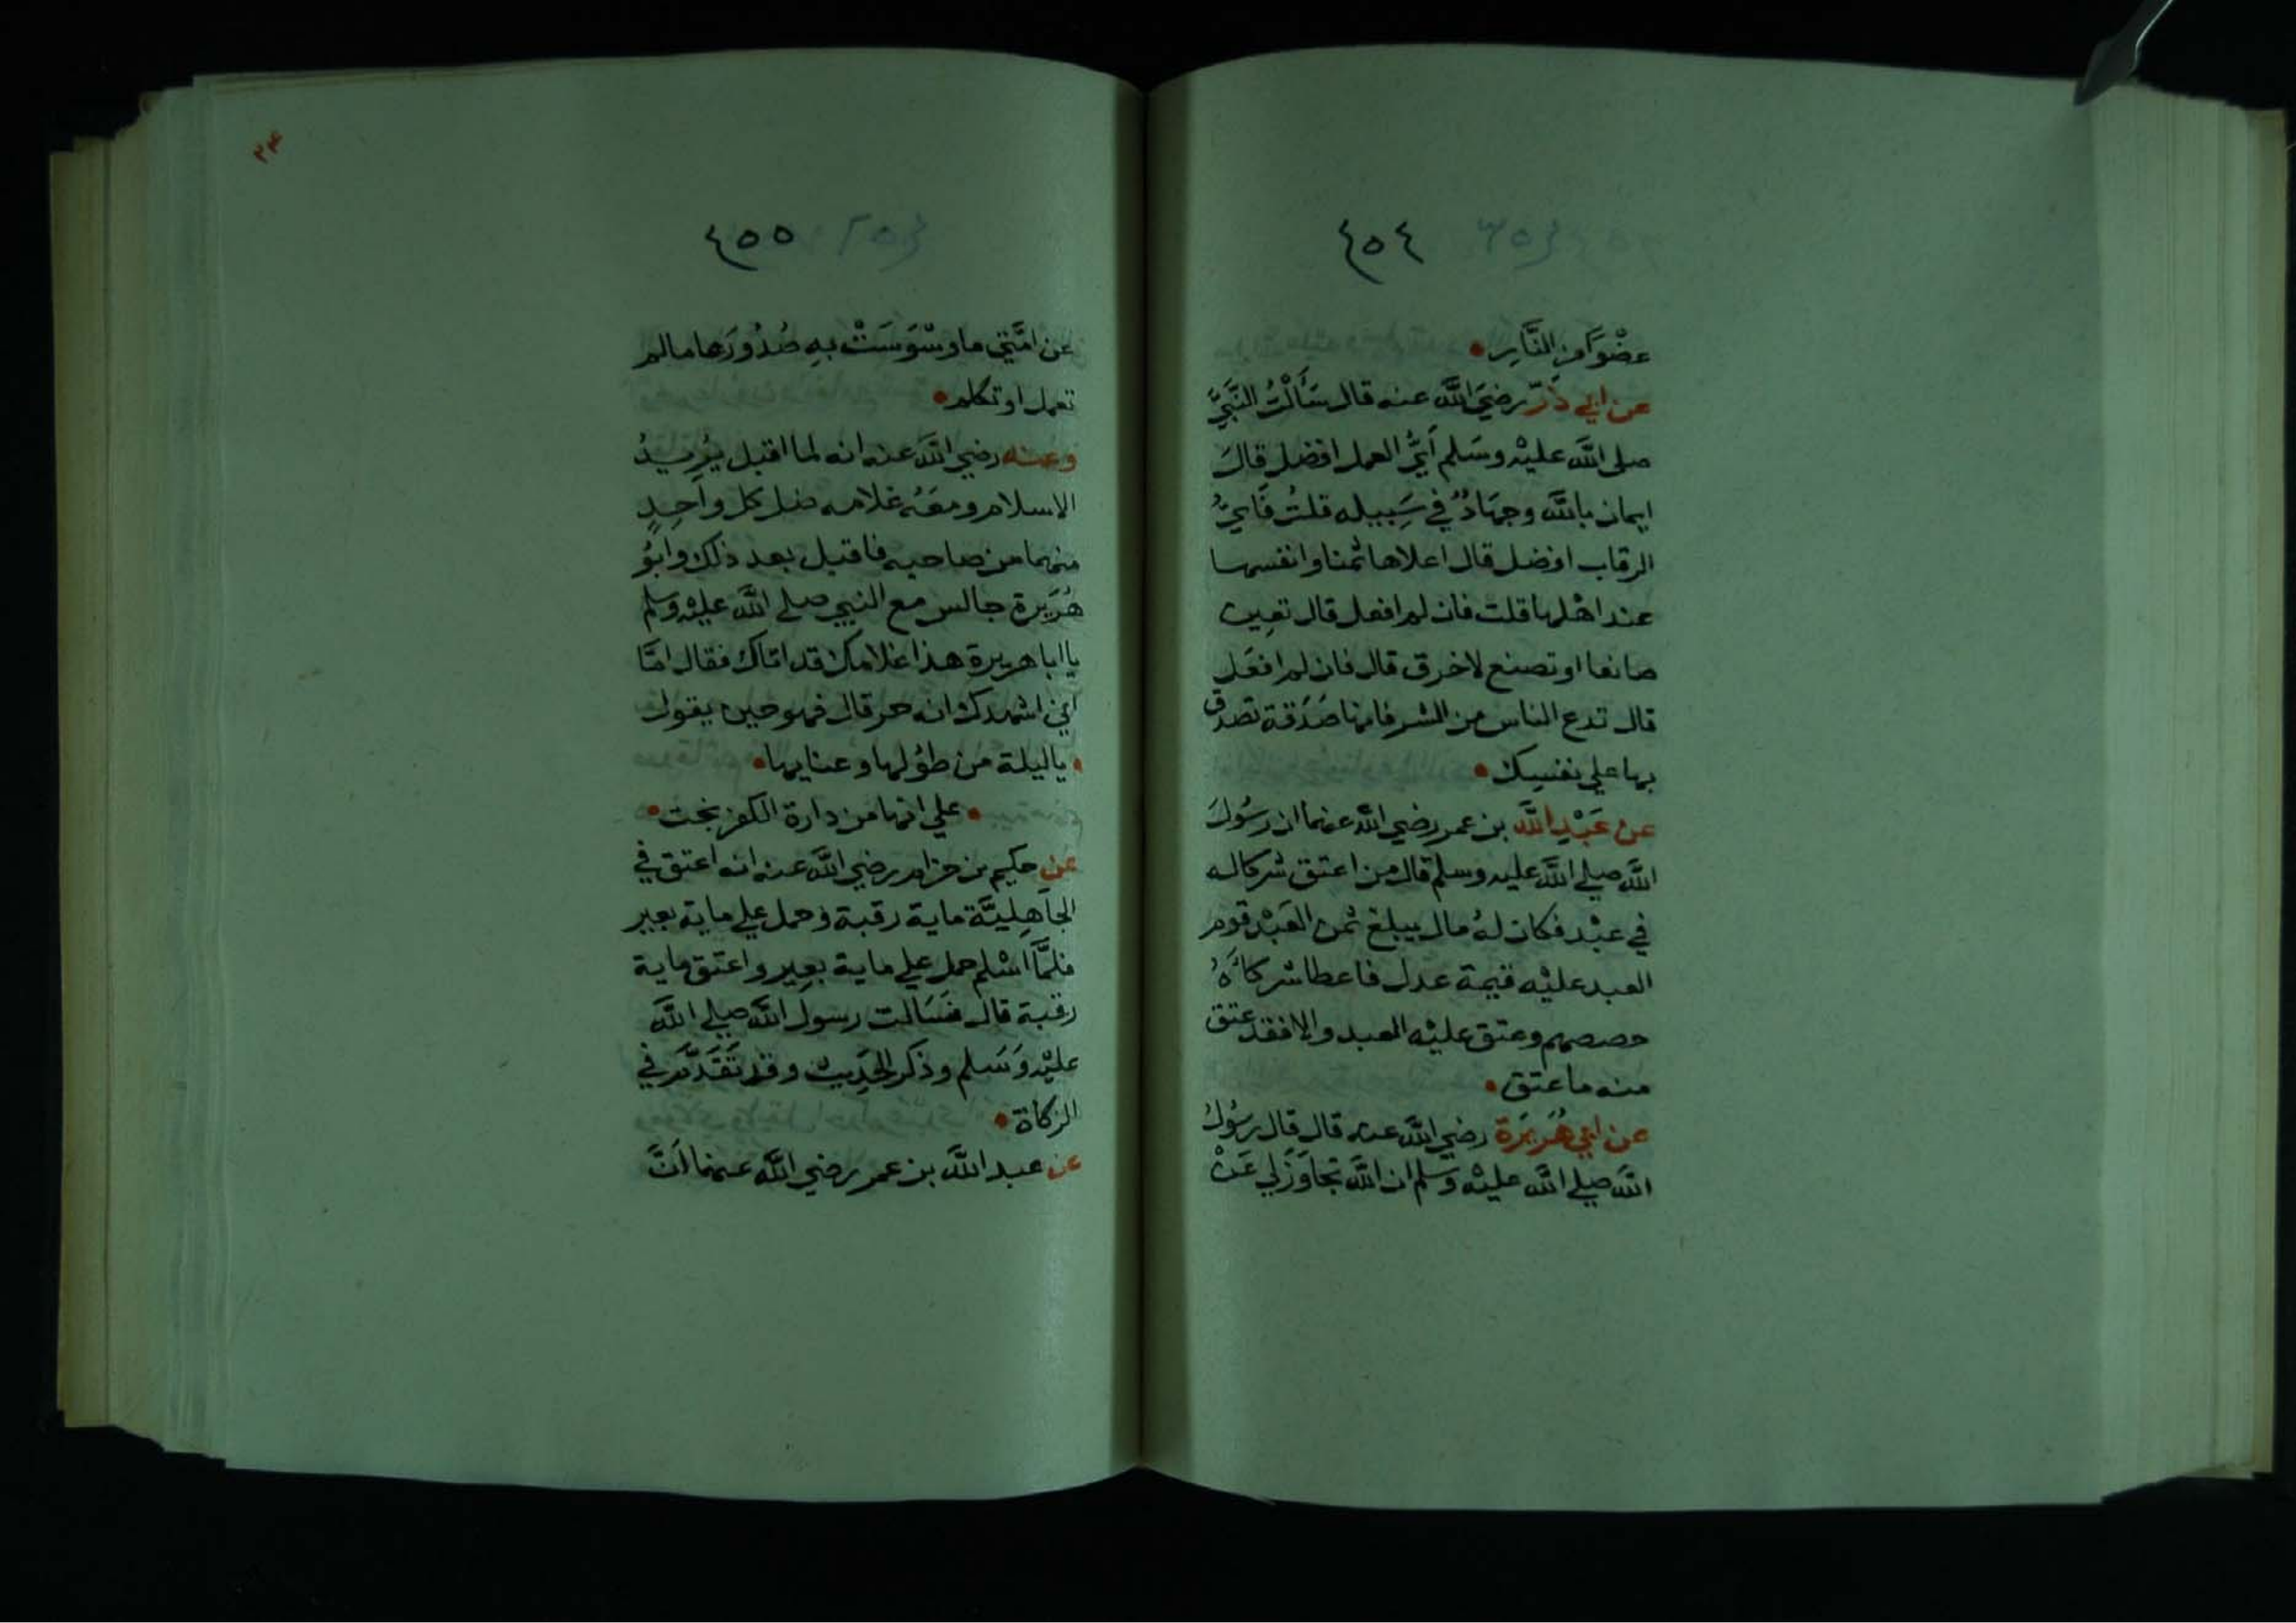 ٤٥٤
عضْوًا من النَّارِ •
عن ابي ذَرّ رضيَ اللَّه عنه قال سَأَلْتُ النَّبيَّ
صلى اللَّه عليْه وسَلم أيُّ العمل افضل قالَ
ايمان باللَّه وجهَادٌ في سَبِيله قلتُ فَايُّ
الرقاب افضل قال اعلاها ثمنا وانفسها
عند اهْلها قلت فان لم افعل قال تعِين
صانعا او تصنع لاخرق قال فان لم افعَل
قال تدع الناس من الشر فانها صَدَقة تصدق
بها علي نفسِك •
عن عَبْدِ اللَّه بن عمر رضي اللَّه عنهما ان رسُولَ
اللَّه صلي اللَّه عليه وسلم قال من اعتق شركا له
في عبْد فكان لهُ مال يبلغ ثمن العَبْد قوم
العبد عليْه قيمة عدل فاعطا شركاَءهُ
حصصهم وعتق عليْه العبد والا فقد عتق
منه ما عتق •
عن ابي هُرَيرَة رضي اللَّه عنه قال قال رسُولُ
اللَّه صلي اللَّه عليْه وَسَلم ان اللَّه تجاوَزَ لي عَنْ
٤٥٥
٢٤
عن امَّتي ما وسْوَسَتْ بهِ صُدُورَها ما لم
تعمل او تكلم •
وعنه رضي اللَّه عنه انه لما اقبل يُرِيدُ
الاسلام ومعَهُ غلامه ضل كل واحِدٍ
منهما من صاحبه فاقبل بعد ذلك وابُو
هُرَيرة جالس مع النبي صلي اللَّه عليْه وسلم
يا ابا هريرة هذا غلامك قد اتاك فقال امَّا
اني اشهدك انه حر قال فهو حين يقول
• ياليلة من طوُلها وعنايها •
• علي انها من دارة الكفر نجت •
عن حكيم بن حزام رضي اللَّه عنه انه اعتق في
الجاهِليَّة ماية رقبة وحمل علي ماية بعير
فلمَّا اسْلم حمل علي ماية بعِير واعتق ماية
رقبة قال فسَالت رسول اللَّه صلي اللَّه
عليْه وَسَلم وذكر الحَدِيث وقد تَقَدَّمَ في
الزكاة •
عن عبد اللَّه بن عمر رضي اللَّه عنهما انَّ